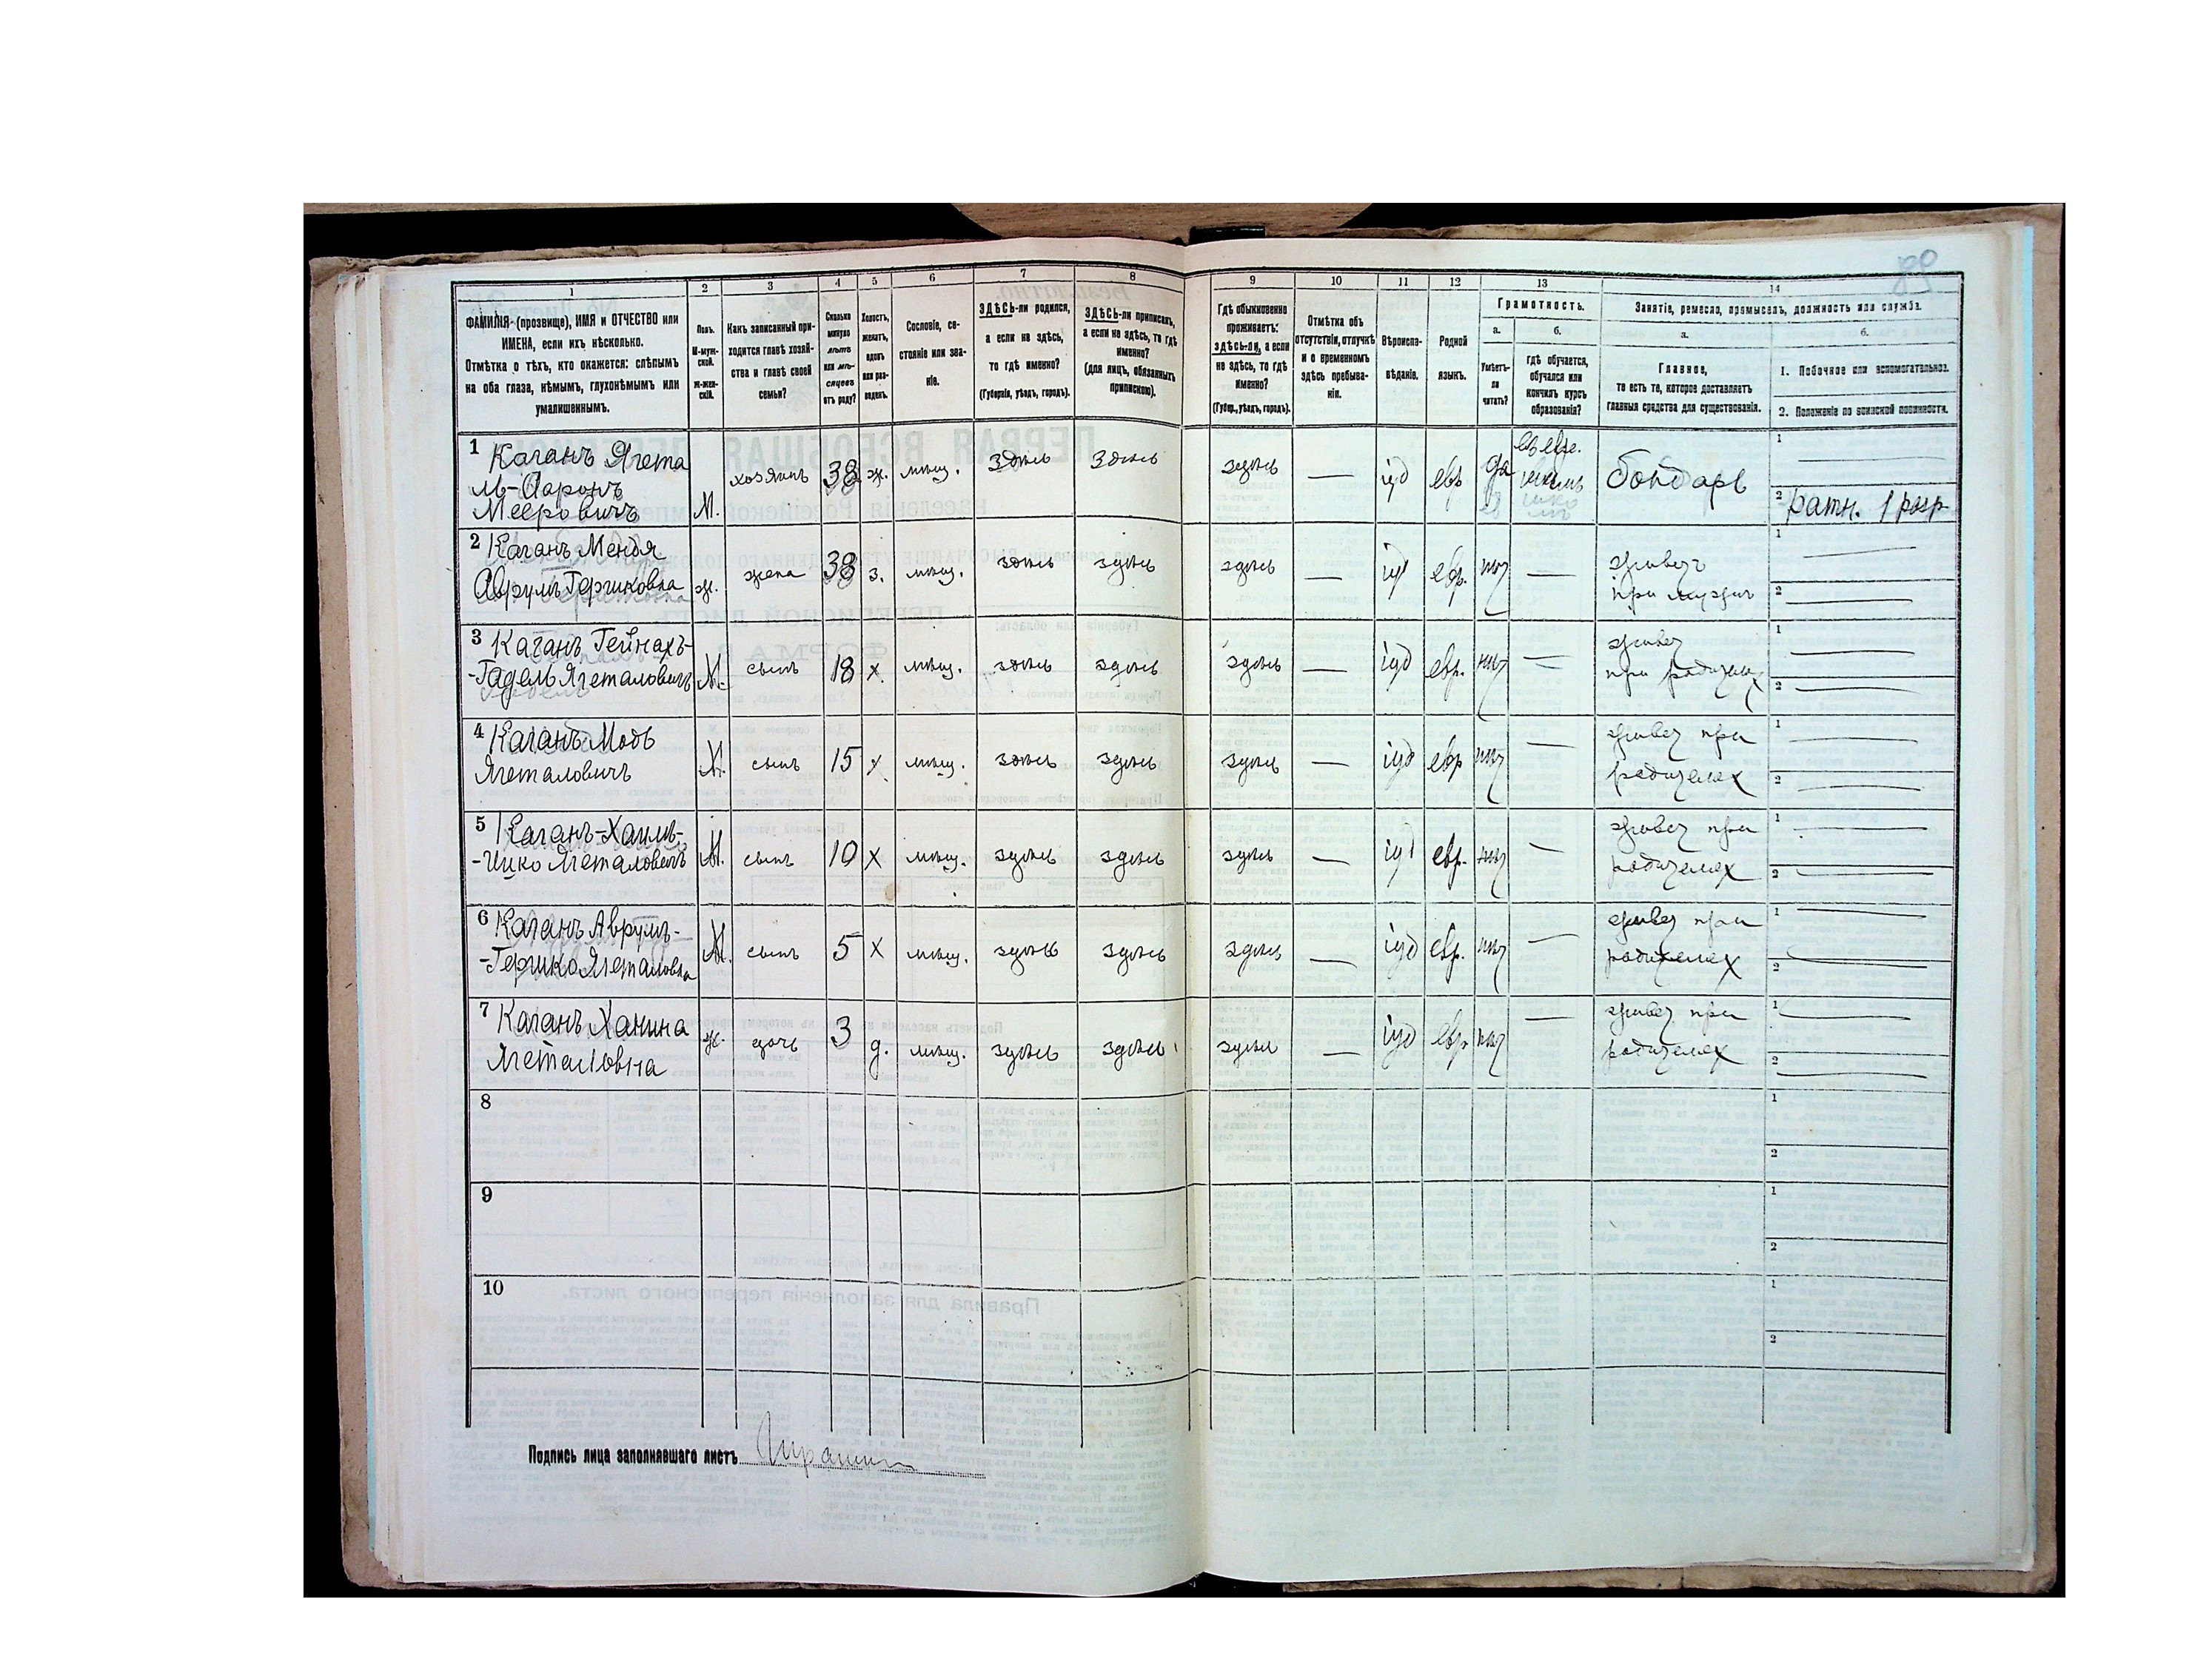 89
1 2 3 4 5 6 7 8 9 10 11 12 13 14
ФАМИЛІЯ (прозвище), ИМЯ и ОТЧЕСТВО или
ИМЕНА, если ихъ нѣсколько.
Отмѣтка о тѣхъ, кто окажется: слѣпымъ
на оба глаза, нѣмымъ, глухонѣмымъ или
умалишеннымъ.
Полъ.
М-муж-
ской.
Ж-жен-
скій.
Какъ записанный при-
ходится главѣ хозяй-
ства и главѣ своей
семьи?
Сколько
минуло
лѣтъ
или мѣ-
сяцевъ
отъ роду?
Холостъ,
женатъ,
вдовъ
или раз-
веденъ.
Сословіе, со-
стояніе или зва-
ніе.
ЗДѢСЬ-ли родился,
а если не здѣсь,
то гдѣ именно?
(Губернія, уѣздъ, городъ).
ЗДѢСЬ-ли приписанъ,
а если не здѣсь, то гдѣ
именно?
(для лицъ, обязанныхъ
припискою).
Гдѣ обыкновенно
проживаетъ:
здѣсь-ли, а если
не здѣсь, то гдѣ
именно?
(Губер., уѣздъ, городъ).
Отмѣтка объ
отсутствіи, отлучкѣ
и о временномъ
здѣсь пребыва-
ніи.
Вѣроиспо-
вѣданіе.
Родной
языкъ.
Грамотность.
а. б.
Умѣетъ-
ли
читать?
гдѣ обучается,
обучался или
кончилъ курсъ
образованія?
Занятіе, ремесло, промыселъ, должность или служба.
а. б.
Главное,
то есть то, которое доставляетъ
главныя средства для существованія.
1. Побочное или вспомогательное.
2. Положеніе по воинской повинности.
1 Каганъ Ягета
лъ-Ааронъ
Мееровичъ М. хозяинъ 38 ж. мѣщ. здѣсь здѣсь здѣсь — іуд евр да въ евр. школѣ бондарь
1 —
2 ратн. 1 разр
2 Каганъ Мендя
Аврумъ Гершковна ж. жена 38 з. мѣщ. здѣсь здѣсь здѣсь — іуд евр. нѣт — живет
при муже
1 —
2 —
3 Каганъ Гейнахъ-
-Гадель Ягеталовичъ М. сынъ 18 х. мѣщ. здѣсь здѣсь здѣсь — іуд евр. нѣт — живет
при родителях
1 —
2 —
4 Каганъ
Ягеталовичъ М. сынъ 15 х. мѣщ. здѣсь здѣсь здѣсь — іуд евр нѣт — живет при
родителях
1 —
2 —
5 Каганъ-Хаимъ-
-Ицко Ягеталовичъ М. сынъ 10 х мѣщ. здѣсь здѣсь здѣсь — іуд евр. нѣт — живет при
родителях
1 —
2 —
6 Каганъ Аврумъ-
-Гершко М. сынъ 5 х мѣщ. здѣсь здѣсь здѣсь — іуд евр. нѣт — живет при
родителях
1 —
2 —
7 Каганъ Ханина
Ягеталовна ж. дочь 3 д. мѣщ. здѣсь здѣсь здѣсь — іуд евр. нѣт — живет при
родителях
1 —
2 —
8
1
2
9
1
2
10
1
2
Подпись лица заполнявшаго листъ